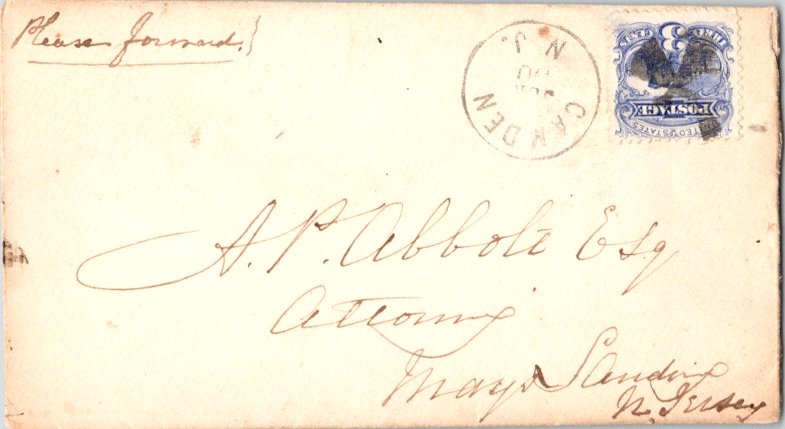 Please forward.
CAMDEN N.J.
UNITED STATES
POSTAGE
THREE 3 CENTS
A. P. Abbott Esq
Attorny
Mays Landing
N. Jersey